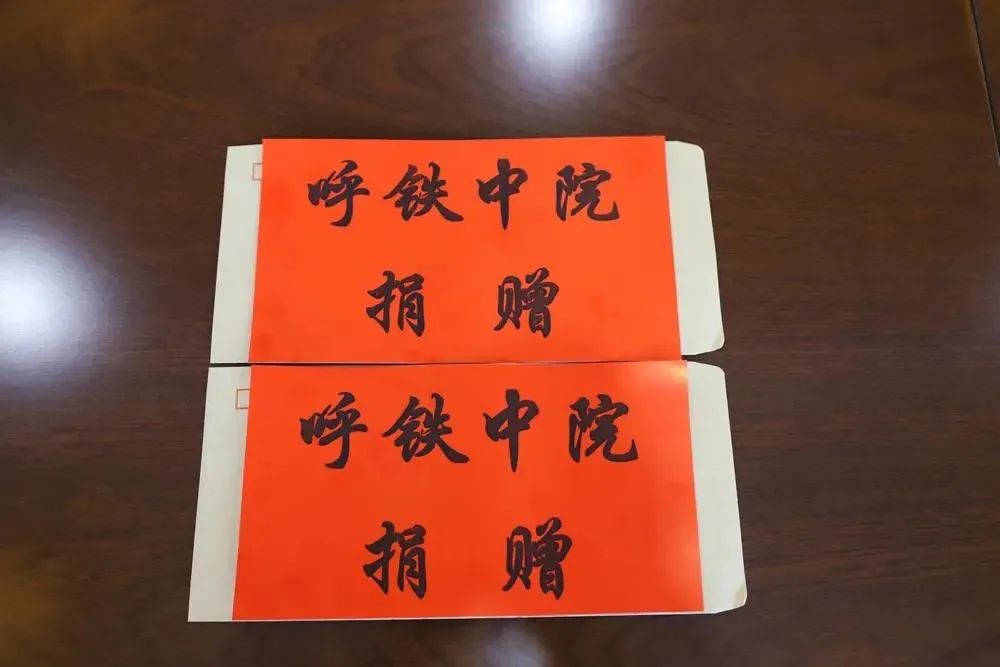 呼铁中院
捐赠
呼铁中院
捐赠